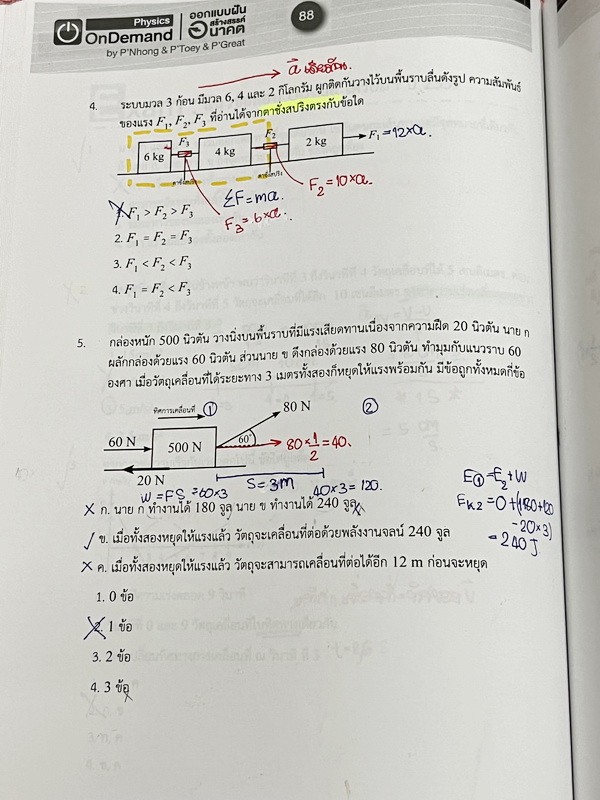 Physics
OnDemand
ออกแบบฝัน
สร้างสรรค์
อนาคต
by P'Nhong & P'Toey & P'Great
88
4. ระบบมวล 3 ก้อน มีมวล 6, 4 และ 2 กิโลกรัม ผูกติดกันวางไว้บนพื้นราบลื่นดังรูป ความสัมพันธ์
ของแรง F₁, F₂, F₃ ที่อ่านได้จากตาชั่งสปริงตรงกับข้อใด
6 kg F₃ 4 kg F₂ 2 kg F₁ = 12×a.
ตาชั่งสปริง ตาชั่งสปริง
ΣF = ma
F₂ = 10×a.
F₃ = 6×a.
1. F₁ > F₂ > F₃
2. F₁ = F₂ = F₃
3. F₁ < F₂ < F₃
4. F₁ = F₂ < F₃
5. กล่องหนัก 500 นิวตัน วางนิ่งบนพื้นราบที่มีแรงเสียดทานเนื่องจากความฝืด 20 นิวตัน นาย ก
ผลักกล่องด้วยแรง 60 นิวตัน ส่วนนาย ข ดึงกล่องด้วยแรง 80 นิวตัน ทำมุมกับแนวราบ 60
องศา เมื่อวัตถุเคลื่อนที่ได้ระยะทาง 3 เมตรทั้งสองก็หยุดให้แรงพร้อมกัน มีข้อถูกทั้งหมดกี่ข้อ
ทิศการเคลื่อนที่ ① ②
80 N
60 N 500 N 60° 80×1/2 = 40.
20 N
S = 3m
W = FS = 60×3 40×3 = 120.
E① = E₂ + W
Ek2 = 0 + (180+120
-20×3)
= 240 J
✗ ก. นาย ก ทำงานได้ 180 จูล นาย ข ทำงานได้ 240 จูล
✓ ข. เมื่อทั้งสองหยุดให้แรงแล้ว วัตถุจะเคลื่อนที่ต่อด้วยพลังงานจลน์ 240 จูล
✗ ค. เมื่อทั้งสองหยุดให้แรงแล้ว วัตถุจะสามารถเคลื่อนที่ต่อได้อีก 12 m ก่อนจะหยุด
1. 0 ข้อ
2. 1 ข้อ
3. 2 ข้อ
4. 3 ข้อ